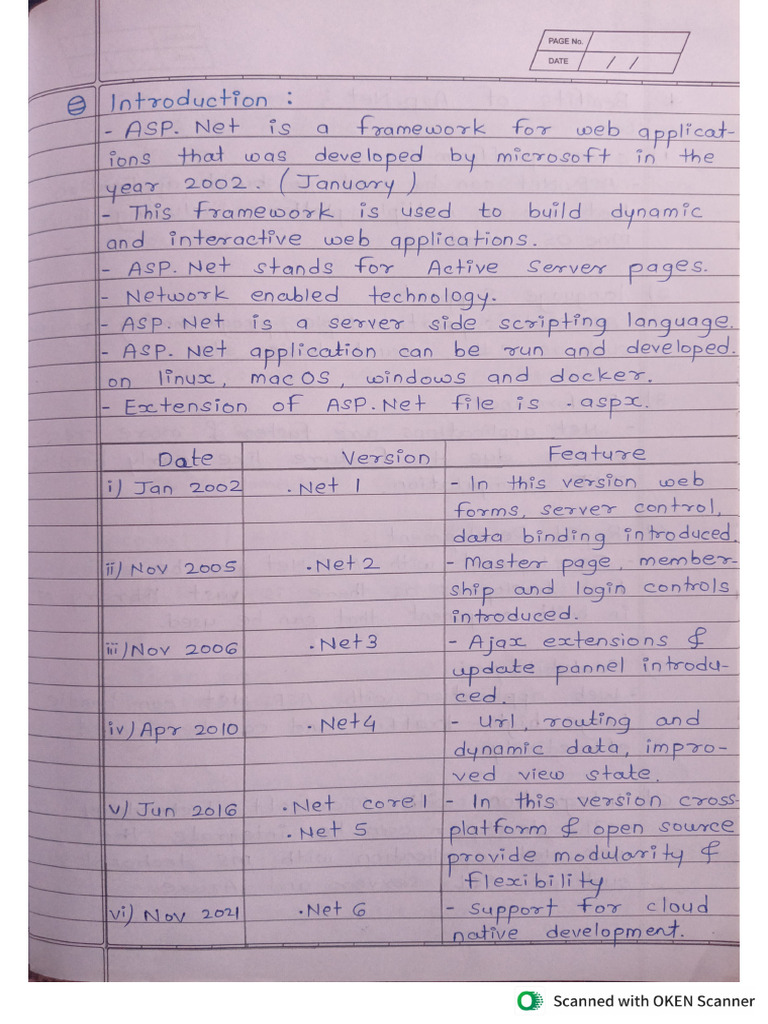 PAGE No.
DATE / /
Introduction :
- ASP. Net is a framework for web applicat-
ions that was developed by microsoft in the
year 2002. (January)
- This framework is used to build dynamic
and interactive web applications.
- ASP. Net stands for Active Server pages.
- Network enabled technology.
- ASP. Net is a server side scripting language.
- ASP. Net application can be run and developed.
on linux, mac OS, windows and docker.
- Extension of ASP.Net file is .aspx.
Date Version Feature
i) Jan 2002 .Net 1 - In this version web
forms, server control,
data binding introduced.
ii) Nov 2005 .Net 2 - Master page, member-
ship and login controls
introduced.
iii) Nov 2006 .Net3 - Ajax extensions &
update pannel introdu-
ced.
iv) Apr 2010 .Net4 - Url, routing and
dynamic data, impro-
ved view state.
v) Jun 2016 .Net core1 - In this version cross-
.Net 5 platform & open source
provide modularity &
flexibility
vi) Nov 2021 .Net 6 - Support for cloud
native development.
Scanned with OKEN Scanner